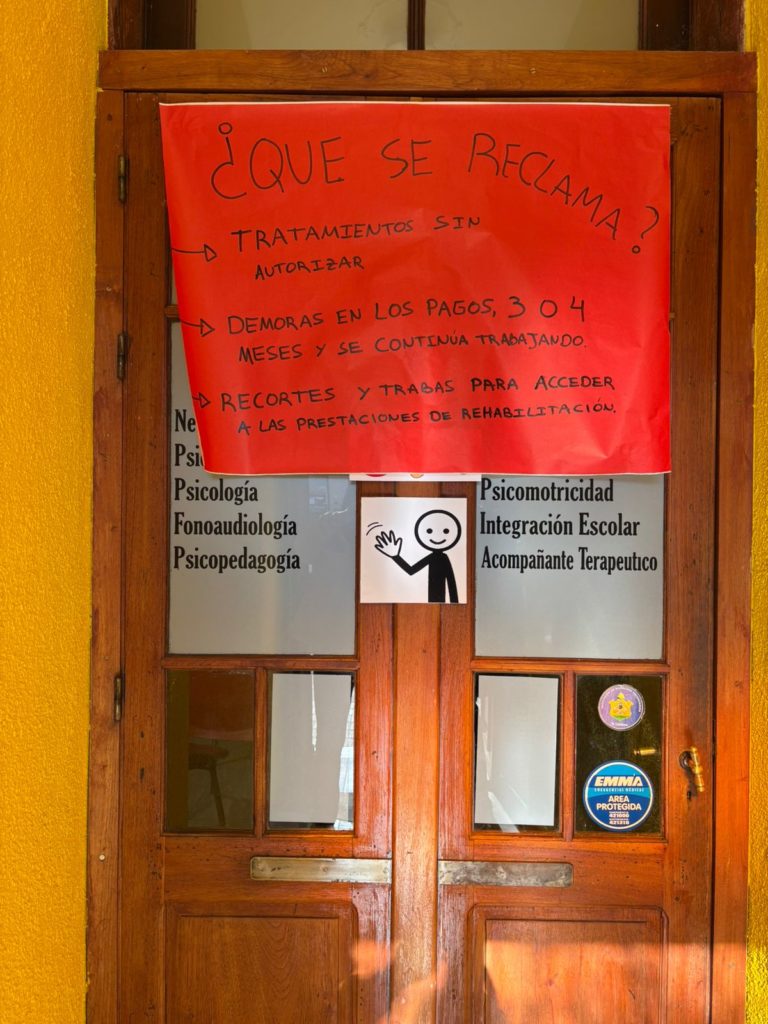 ¿QUE SE RECLAMA?
TRATAMIENTOS SIN
AUTORIZAR
DEMORAS EN LOS PAGOS, 3 O 4
MESES Y SE CONTINÚA TRABAJANDO.
RECORTES Y TRABAS PARA ACCEDER
A LAS PRESTACIONES DE REHABILITACIÓN.
Psicología
Fonoaudiología
Psicopedagogía
Psicomotricidad
Integración Escolar
Acompañante Terapeutico
EMMA
EMERGENCIAS MÉDICAS
AREA
PROTEGIDA